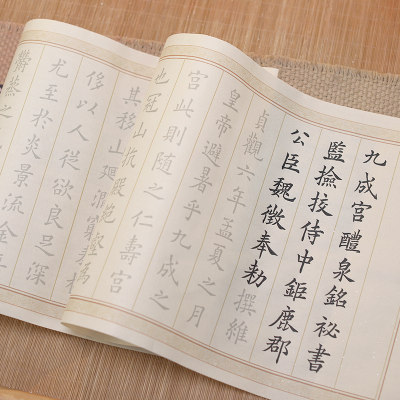 九成宫醴泉銘祕書
監撿挍侍中鉅鹿郡
公臣魏徵奉勑撰維
貞觀六年孟夏之月
皇帝避暑乎九成之
宫此則随之仁壽宫
也冠山抗殿絕壑為
其移山
侈以人從欲良足深
尤至於炎景流金
欝蒸之